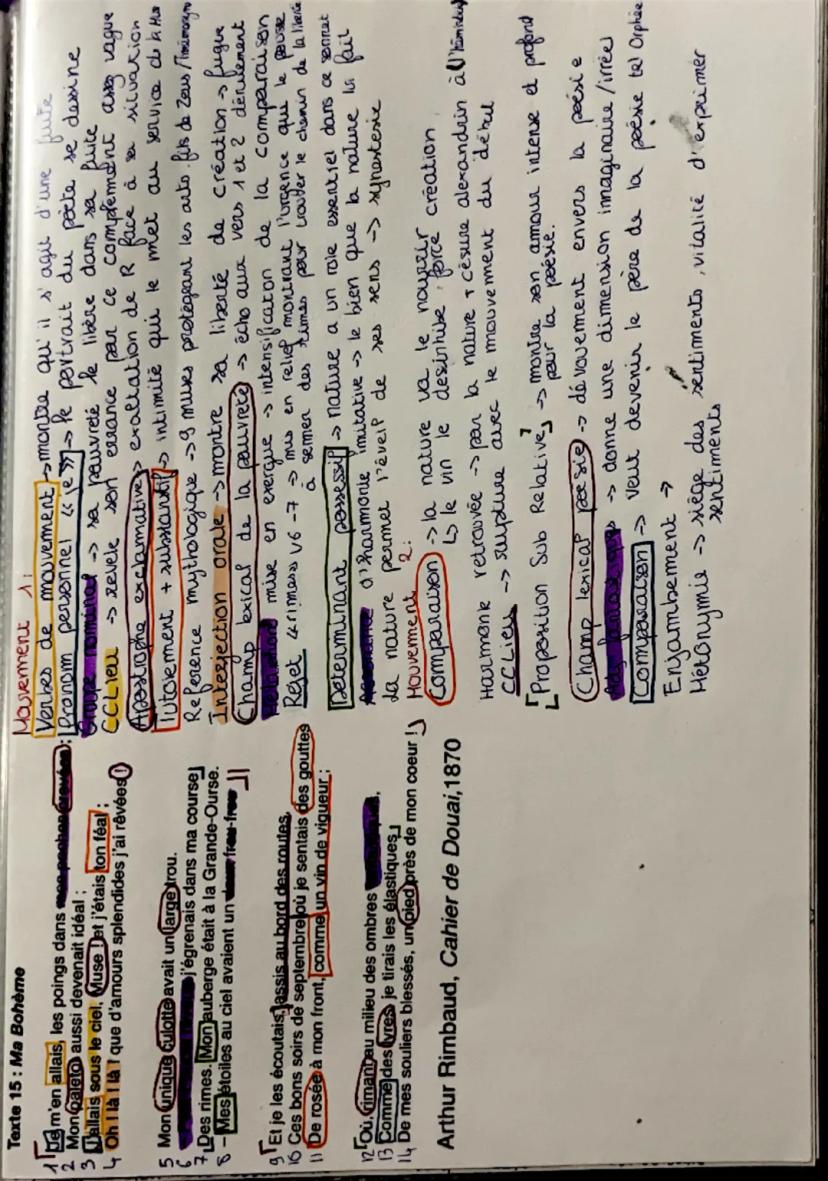 Texte 15 : Ma Bohème
1 Je m'en allais, les poings dans mes poches crevées ;
2 Mon paletot aussi devenait idéal ;
3 J'allais sous le ciel, Muse ! et j'étais ton féal ;
4 Oh ! là ! là ! que d'amours splendides j'ai rêvées !
5 Mon unique culotte avait un large trou.
6 j'égrenais dans ma course
7 Des rimes. Mon auberge était à la Grande-Ourse.
8 - Mes étoiles au ciel avaient un doux frou-frou
9 Et je les écoutais, assis au bord des routes,
10 Ces bons soirs de septembre où je sentais des gouttes
11 De rosée à mon front, comme un vin de vigueur ;
12 Où, rimant au milieu des ombres
13 Comme des lyres, je tirais les élastiques
14 De mes souliers blessés, un pied près de mon coeur !
Arthur Rimbaud, Cahier de Douai, 1870
Mouvement 1 :
Verbes de mouvement → montre qu'il s'agit d'une fuite
Pronom personnel « Je » → le portrait du poète se dessine
Groupe nominal → sa pauvreté le libère dans sa fuite
CCLieu → revele son errance par ce complement assez vague
Apostrophe exclamative → exaltation de R face à sa situation
Tutoiement + substantif → intimité qui le met au service de la Muse
Reference mythologique → 9 muses protégeant les arts fils de Zeus/
Interjection orale → montre sa liberté de création → fugue
Champ lexical de la pauvreté → écho aux vers 1 et 2 dénuement
mise en exergue → intensification de la comparaison
Rejet « rimes » V6-7 → mis en relief montrant l'urgence qui le pousse
à semer des rimes pour trouver le chemin de la liberté
Determinant possessif → nature a un role essentiel dans ce sonnet
d'harmonie imitative → le bien que la nature lui fait
La nature permet l'éveil de ses sens → synestesie
Mouvement 2 :
Comparaison → la nature va le nourrir
↳ le vin le desinhibe, force création
Harmonie retrouvée → par la nature + césure alexandrin à l'hémistiche
CCLieu → rupture avec le mouvement du début
[Proposition Sub Relative] → montre son amour intense et profond
pour la poésie.
Champ lexical poésie → dévouement envers la poésie
→ donne une dimension imaginaire/irréel
Comparaison → veut devenir le père de la poésie tel Orphée
Enjambement →
Métonymie → siège des sentiments, vitalité d'exprimer
sentiments